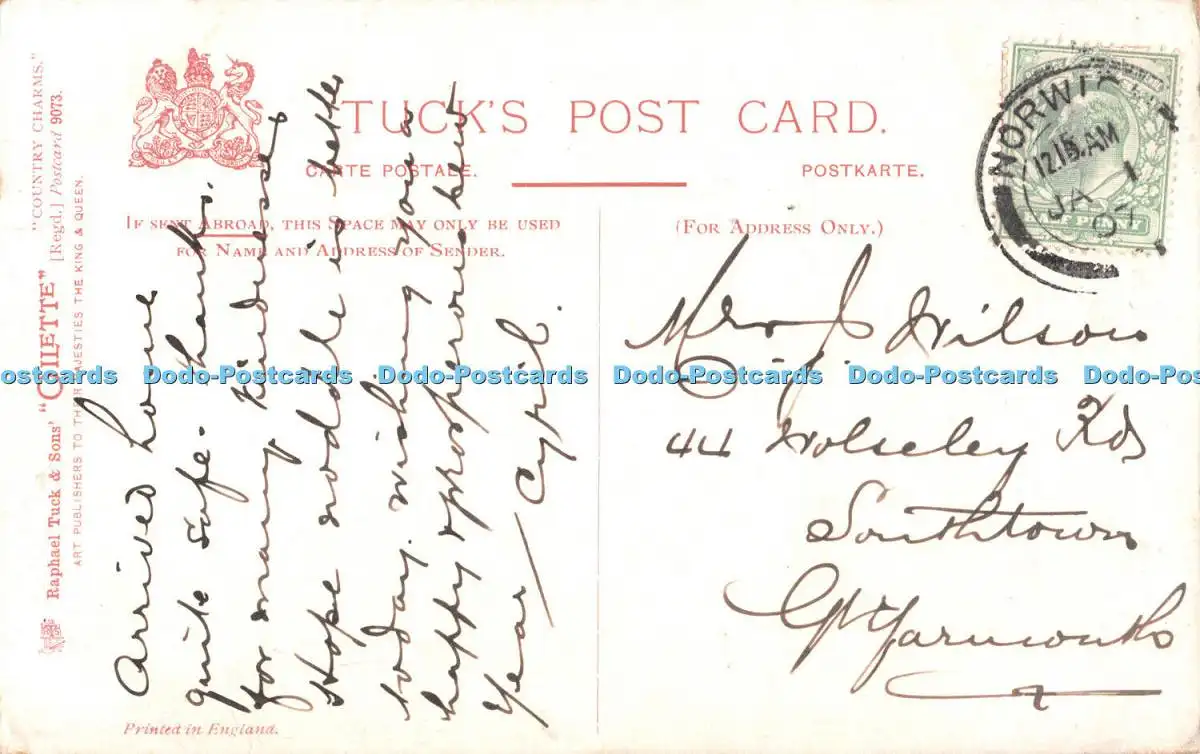 "COUNTRY CHARMS."
Raphael Tuck & Sons' "OILETTE" [Regd.] Postcard 9073.
ART PUBLISHERS TO THEIR MAJESTIES THE KING & QUEEN.
TUCK'S POST CARD.
CARTE POSTALE. POSTKARTE.
IF SENT ABROAD, THIS SPACE MAY ONLY BE USED
FOR NAME AND ADDRESS OF SENDER.
(FOR ADDRESS ONLY.)
NORWI
12.15 AM
JA 1
07
Arrived home
quite safe. Thanks.
for many kindnesses
Hope is better
today. wishing you a
happy & prosperous new
Year
Cyril.
Mrs J Wilson
44 Wolseley Rd
Southtown
Gt Yarmouth
Printed in England.
ostcards Dodo-Postcards Dodo-Postcards Dodo-Postcards Dodo-Postcards Dodo-Pos